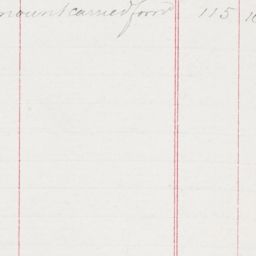 mount carried forwd 115 10